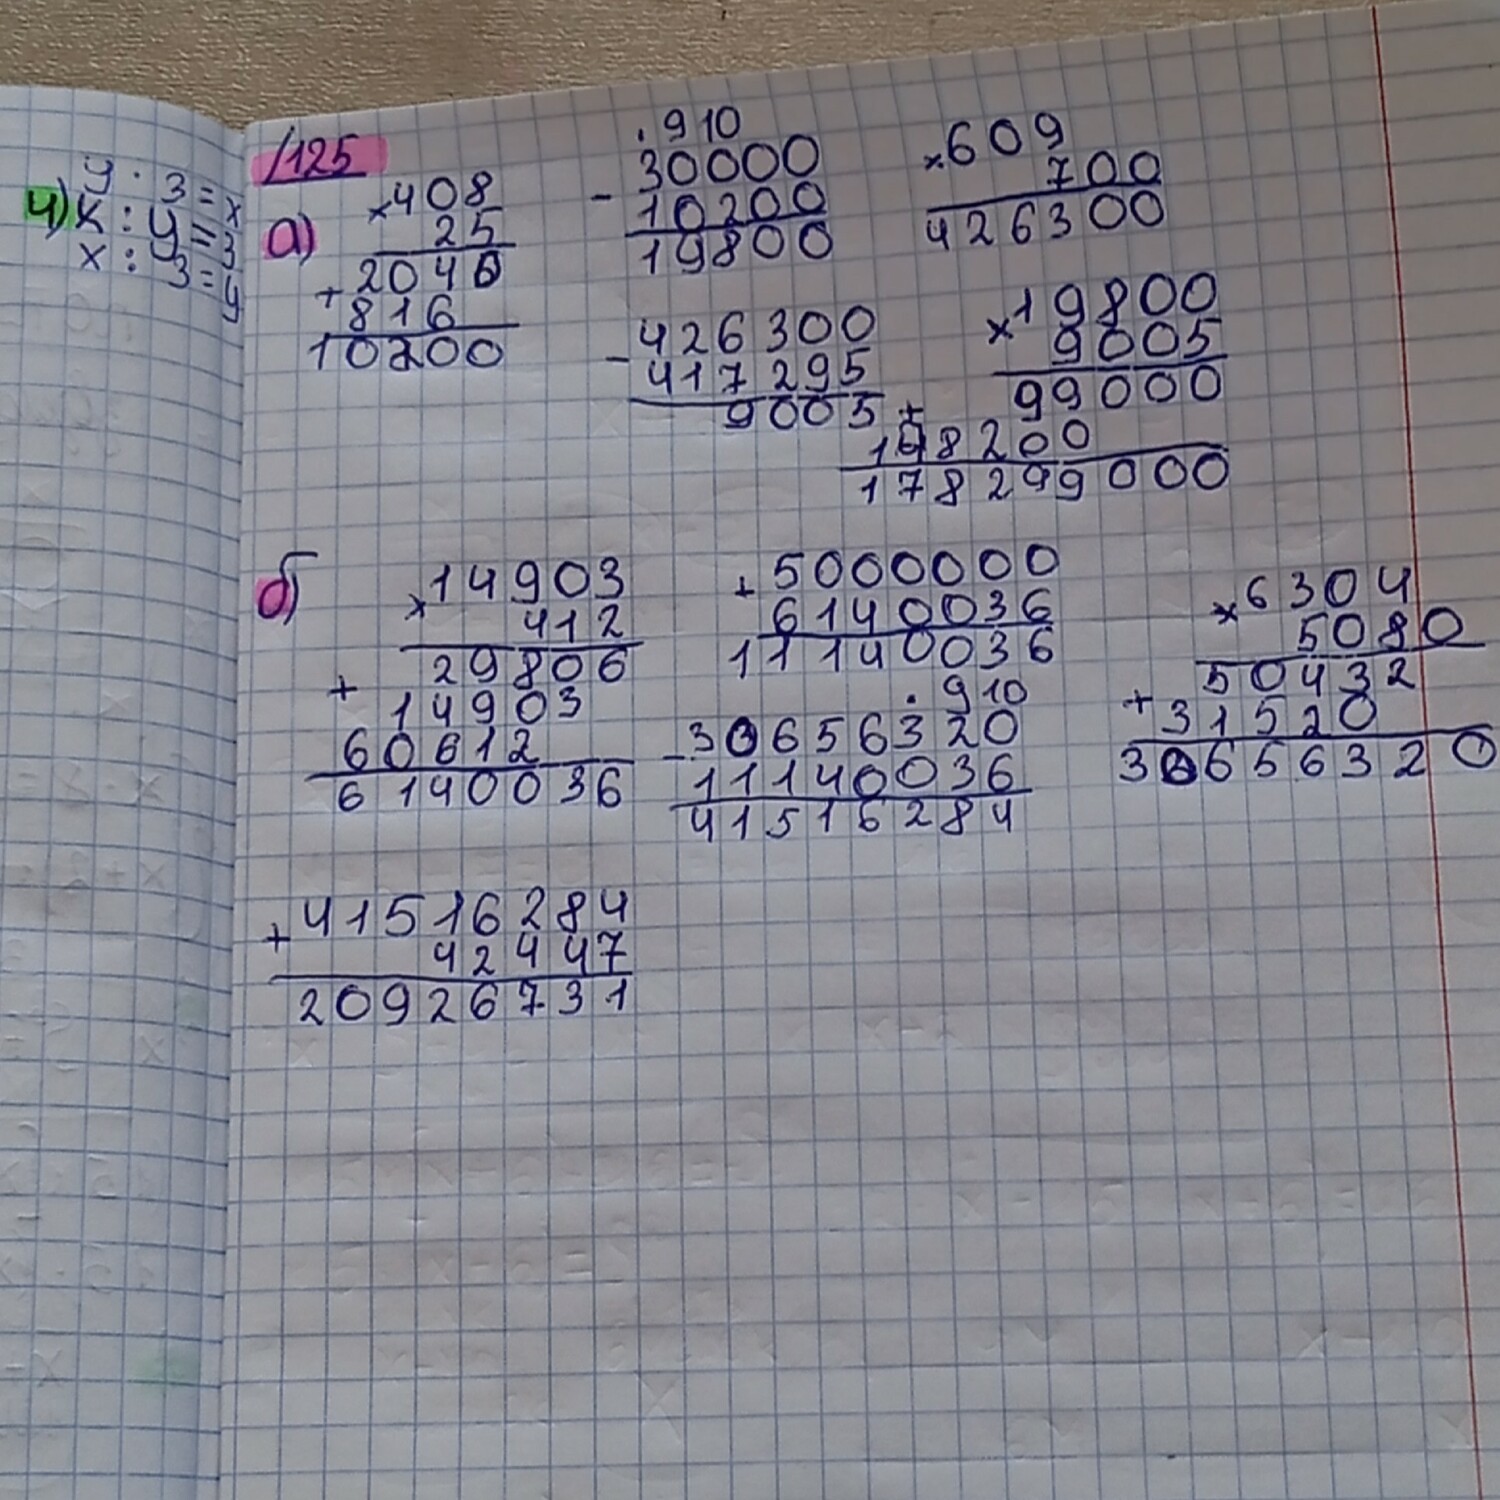 y · 3 = x
4) x : y = 3
x : 3 = y
/125
а)
×408
25
2040
+
816
10200
. 9 10
30000
-
10200
19800
×609
700
426300
426300
-
417295
9005
×19800
9005
99000
+
198200
178299000
б)
×14903
412
29806
+
14903
60612
6140036
+5000000
6140036
11140036
. 9 10
-30656320
11140036
41516284
×6304
5080
50432
+
31520
30656320
+41516284
42447
20926731